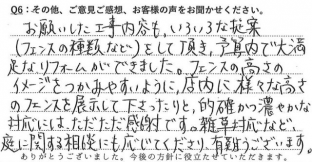 Q6：その他、ご意見ご感想、お客様の声をお聞かせください。
お願いした工事内容も、いろいろな提案
(フェンスの種類など)をして頂き、予算内で大満
足なリフォームができました。フェンスの高さの
イメージをつかみやすいように、店内に様々な高さ
のフェンスを展示して下さったりと、的確かつ濃やかな
対応には、ただただ感謝です。雑草対応など、
庭に関する相談にも応じてくださり、有難うございます。
ありがとうございました。今後の方針に役立たせていただきます。